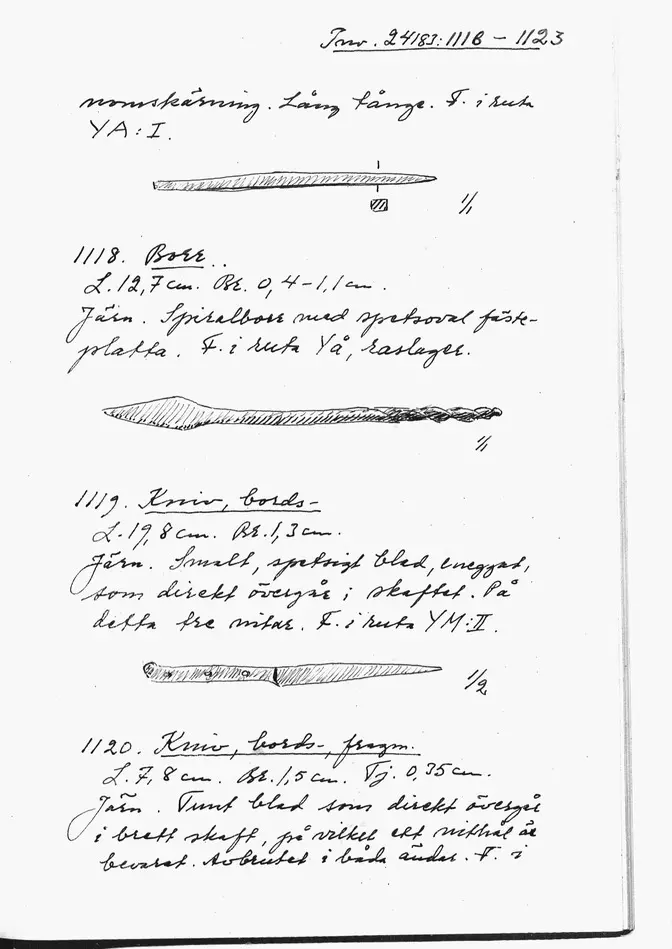 Inv. 24183:1118 – 1123
nomskärning. Lång tånge. F. i ruta
YA:I.
1/1
1118. Borr.
L. 12,7 cm. Br. 0,4–1,1 cm.
Järn. Spiralborr med spetsoval fäste-
platta. F. i ruta Yå, raslager.
1/1
1119. Kniv, bords-
L. 19,8 cm. Br. 1,3 cm.
Järn. Smalt, spetsigt blad, eneggat,
som direkt övergår i skaftet. På
detta tre nitar. F. i ruta YM:II.
1/2
1120. Kniv, bords-, fragm.
L. 7,8 cm. Br. 1,5 cm. Tj. 0,35 cm.
Järn. Tunt blad som direkt övergår
i brett skaft, på vilket ett nithål är
bevarat. Avbrutet i båda ändar. F. i